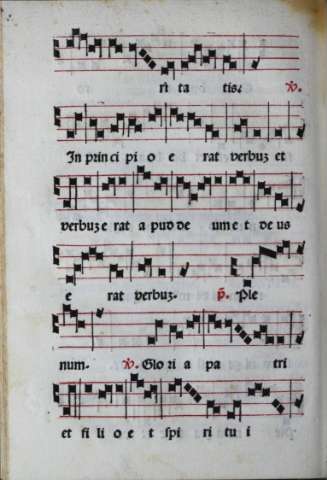 ri ta tis. ℣.
In prin ci pi o e rat verbuꝫ et
verbuꝫ e rat a pud de um e t de us
e rat verbuꝫ. ℟. Ple
num. ℣. Glo ri a pa tri
et fi li o e t spi ri tu i